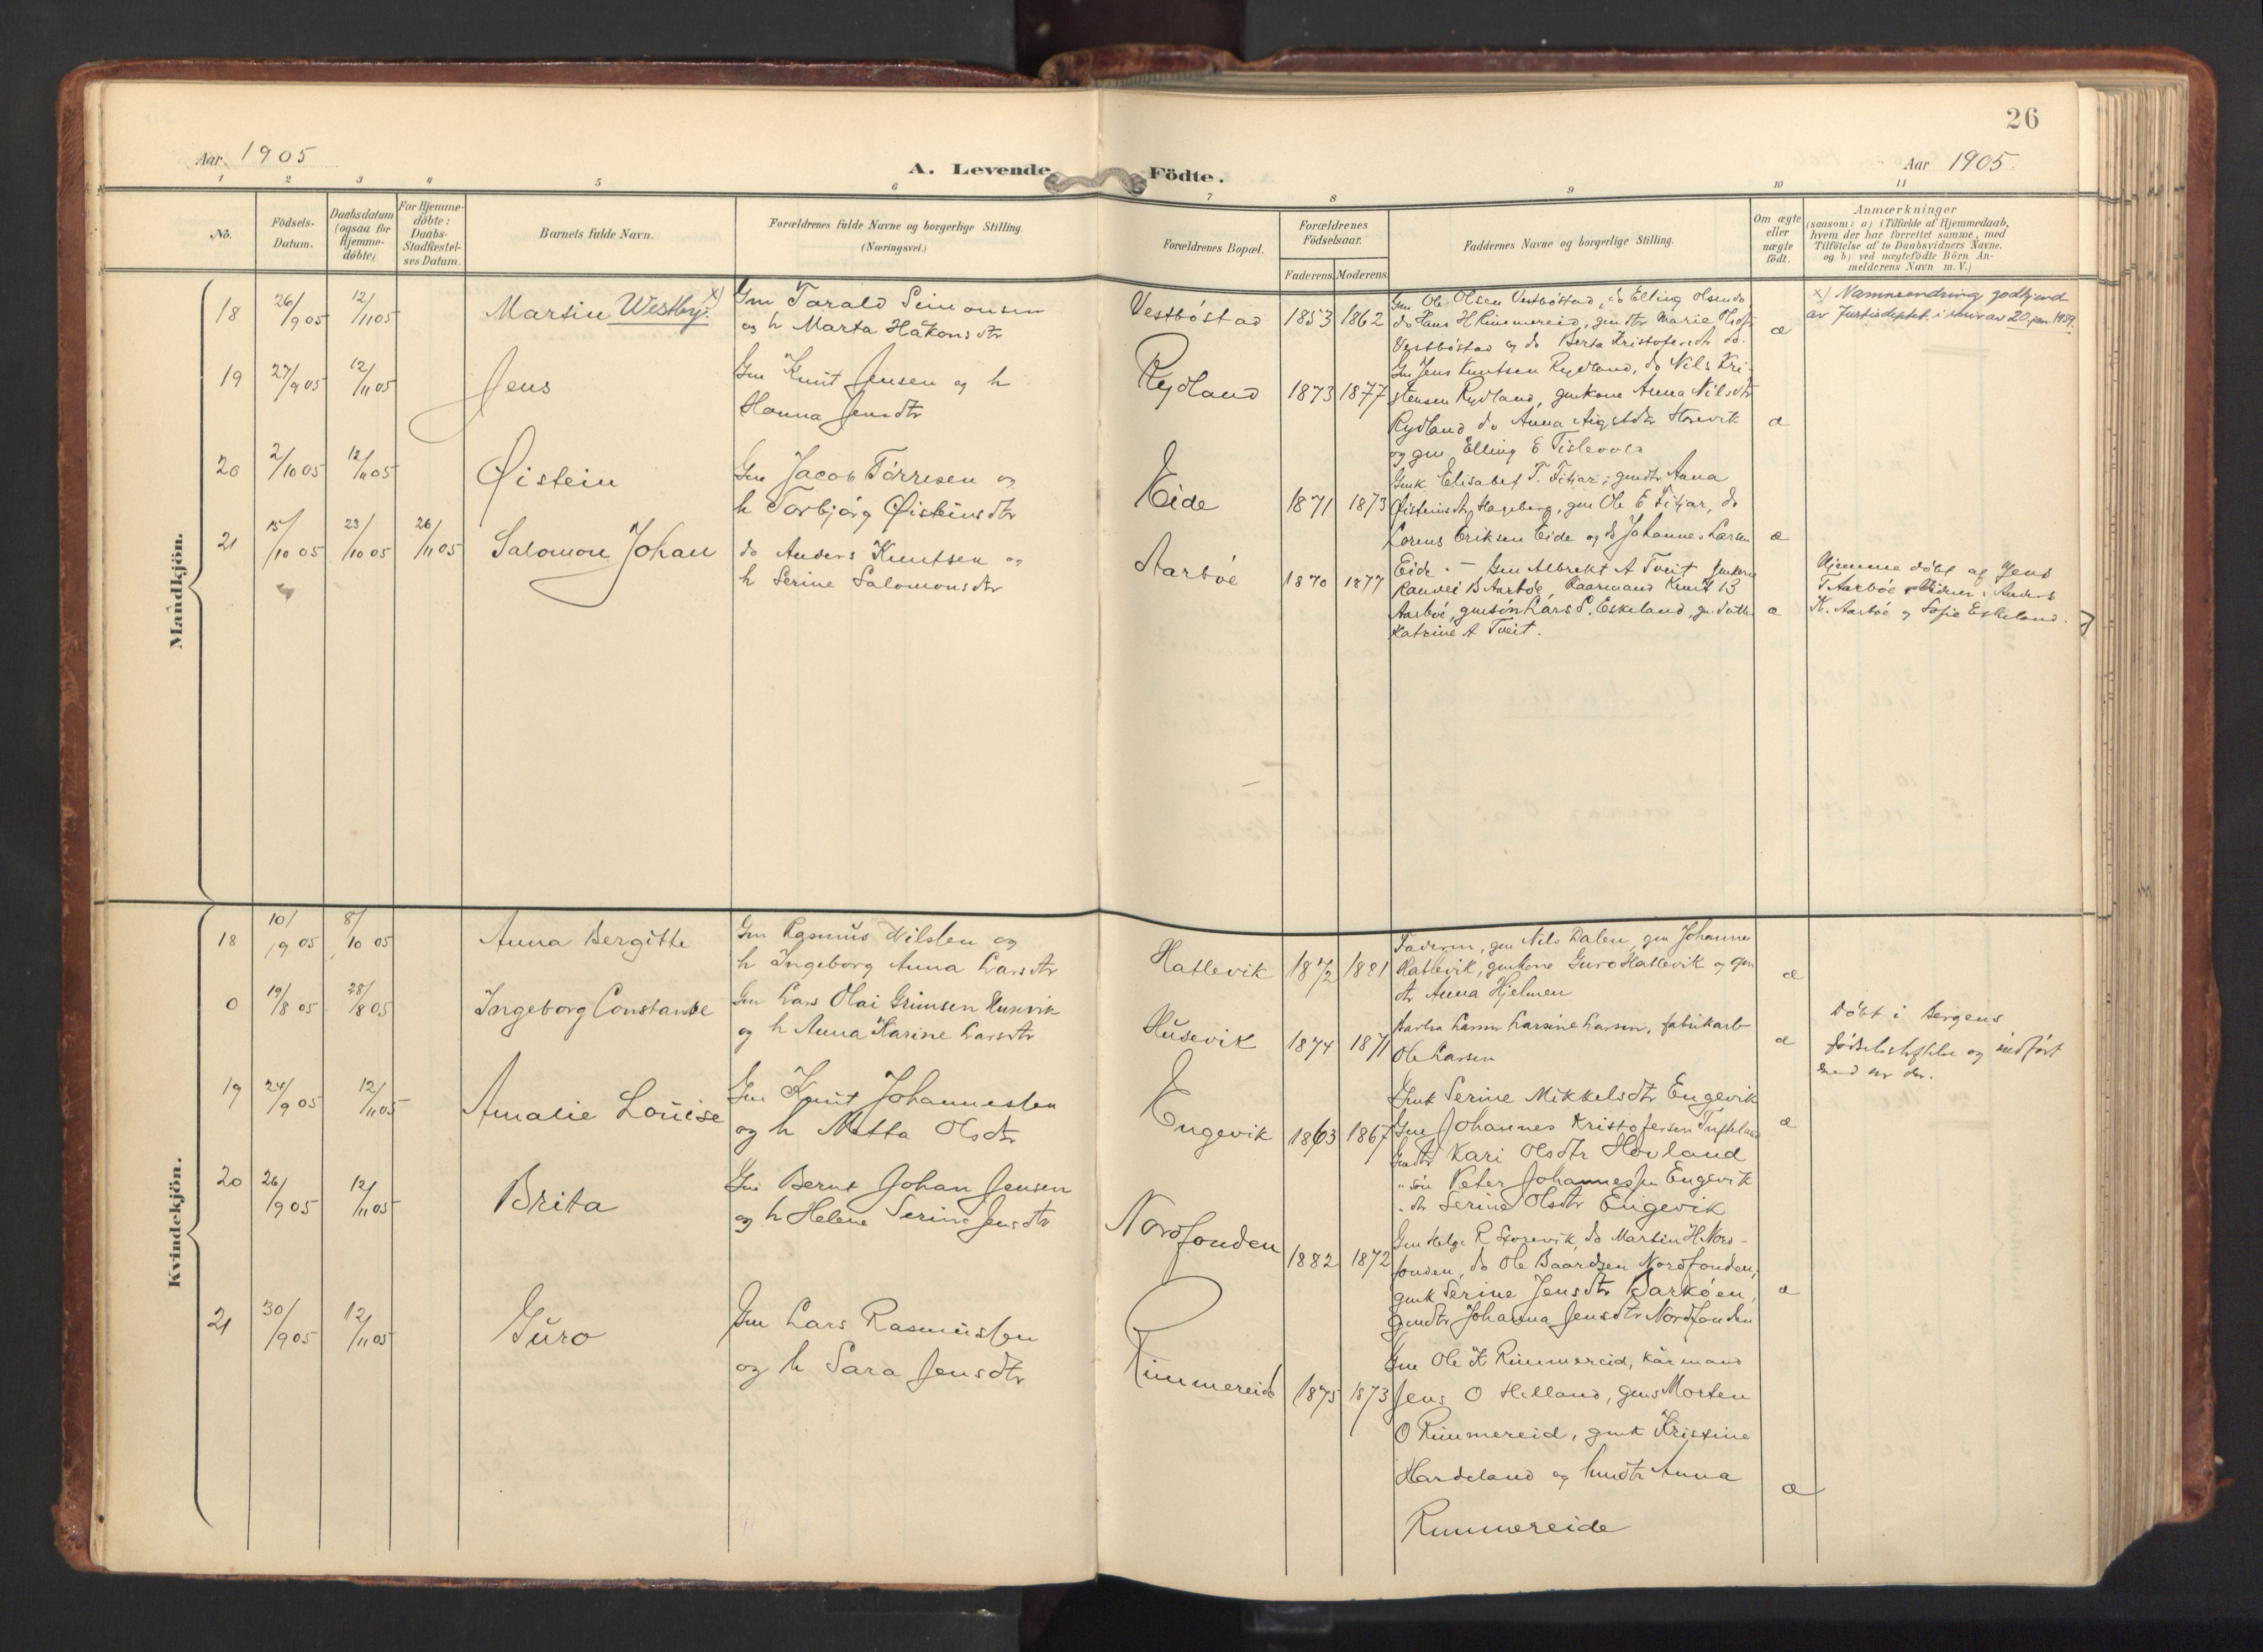 26
Aar 1905
A. Levende Födte.
Aar 1905.
1 2 3 4 5 6 7 8 9 10 11
No.
Födsels-Datum.
Daabsdatum (ogsaa for Hjemme-döbte)
For Hjemme-döbte: Daabs-Stadfæstel-ses Datum.
Barnets fulde Navn.
Forældrenes fulde Navne og borgerlige Stilling.
(Næringsvei.)
Forældrenes Bopæl.
Forældrenes Födselsaar.
Faderens. Moderens.
Faddernes Navne og borgerlige Stilling.
Om ægte eller uægte födt.
Anmærkninger
(saasom: a) i Tilfælde af Hjemmedaab,
hvem der har forrettet samme, med
Tilföielse af to Daabsvidners Navne.
og b) ved uægtefödte Börn An-
melderens Navn m. V.)
Mandkjön.
18 26/9 05 12/11 05 Martin Westby. x)
Gm Tarald Simonsen
og h Marta Håkonsdtr
Vestböstad 1853 1862
Gm Ole Olsen Vestböstad, do Elling Olsen do,
do Hans H Rimmereid, gmdtr Marie Olsdtr
Vestböstad og do Berta Kristofersdtr do.
æ
x) Namneendring godkjend
av Justisdeptet. i skriv av 20. jan. 1939.
19 27/9 05 12/11 05 Jens
Gm Knut Jensen og h
Hanna Jensdtr
Rydland 1873 1877
Gm Jens Knutsen Rydland, do Nils Kri-
stensen Rydland, gmkone Anna Nilsdtr
Rydland do Anna Hovevik
og gm Elling E Tislevold
æ
20 2/10 05 12/11 05 Øistein
Gm Jacob Törresen og
h Torbjörg Øisteinsdtr
Eide 1871 1873
Gmk Elisabet T. Fitjar, gmdtr Anna
Øisteinsdtr Hageberg, gm Ole E Fitjar, do
Lorens Eriksen Eide og do Johannes Larsen
Eide. –
æ
21 15/10 05 23/10 05 26/11 05 Salomon Johan
do Anders Knutsen og
h Serine Salomonsdtr
Aarböe 1870 1877
Gm Albrekt A Tveit gmkone
Ranvei B Aarböe, Kaarmand Knut B
Aarböe, gmsön Lars S. Eskeland, gm. datter
Katrine A Tveit.
æ
Hjemme döbt af Jens
T Aarböe Vidner: Anders
K. Aarböe og Sofie Eskeland.
Kvindekjön.
18 10/9 05 8/10 05 Anna Bergitte
Gm Rasmus Nilsen og
h Ingeborg Anna Larsdtr
Hatlevik 1872 1881
Faderen, gm Nils Dalen, gm Johannes
Hatlevik, gmkone Guro Hatlevik og gm
dtr Anna Hjelmen
æ
0 19/8 05 28/8 05 Ingeborg Constanse
Gm Lars Olai Grimsen Husevik
og h Anna Karine Larsdtr
Husevik 1874 1871
Larsen Larsine Larsen, fabrikarb
Ole Larsen
æ
Döbt i Bergens
födselsstiftelse og indfört
med nr der.
19 24/9 05 12/11 05 Amalie Louise
Gm Knut Johannesen
og h Metta Olsdtr
Engevik 1863 1867
Gmk Serine Mikkelsdtr Engevik
Gm Johannes Kristofersen
Gmdtr Kari Olsdtr Hovland
" sön Peter Johannessen Engevik
" dtr Serine Olsdtr Engevik
æ
20 26/9 05 12/11 05 Brita
Gm Bernt Johan Jensen
og h Helene Serine Jensdtr
Nordfonden 1882 1872
Gm Helge R Storevik, do Martin H Nord-
fonden, do Ole Baardsen Nordfonden,
gmk Serine Jensdtr Barköen,
gmdtr Johanna Jensdtr Nordfonden
æ
21 30/9 05 12/11 05 Guro
Gm Lars Rasmussen
og h Sara Jensdtr
Rimmereid 1875 1873
Gm Ole K Rimmereid, kårmand
Jens O Helland, gms Morten
O Rimmereid, gmk Kristine
Hardeland og hmdtr Anna
Rimmereide
æ